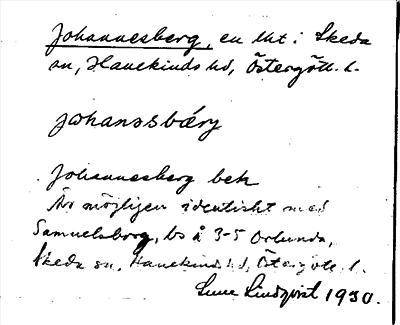 Johannesberg, en lht i Skeda
sn, Hanekinds hd, Östergötl. l.
johansbærj
Johannesberg beh
Är möjligen identiskt med
Samuelsborg, bs å 3-5 Orlunda,
Skeda sn, Hanekinds hd, Östergötl. l.
Sune Lindqvist 1930.